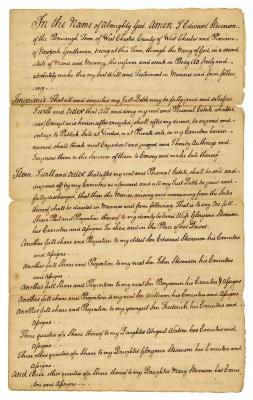 In the Name of Almighty God Amen I Edward Stevenson
of the Borough Town of West Chester County of West Chester and Province
of Newyork Gentleman, being at this Time, through the Mercy of God, in a sound
state of Mind and Memory, tho infirm and weak in Body, do freely and
make this my last Will and Testament in Manner and form follow-
ing
Imprimis That all and singular my Just Debts may be fully paid and satisfied
I will and order that all and every my real and Personal Estate
shall after my decease, be exposed and
Sale at Vendue, or at Private sale, as my Executors herein
named shall think most Expedient and proper and I hereby Authorize and
Impower them or the Survivor of them to Convey and make
Item I will and order that after my real and Personal Estate, shall be sold and
disposed of by my Executors as aforesaid and all my Just Debts be paid and
fully discharged, that then the Monies arising and remaining from the Sales
thereof shall be divided in Manner and form following. That is to say One full
Share Part and Proportion thereof to my dearly beloved Wife Stevenson
his Executors and Assigns
Another full Share and Proportion to my eldest Son Edward Stevenson his Executors
and Assigns
Another full Share and Proportion to my next Son John Stevenson his Executors
and Assigns
Another full Share and Proportion to my next Son Benjamin his Executors & Assigns
Another full Share and Proportion to my next Son William his Executors and Assigns
Another full Share and Proportion to my youngest Son Frederick his Executors and
Assigns
Three quarters of a Share thereof to my Daughter Abigail his Executors and
Assigns
Three other quarters of a Share to my Daughter Stevenson his Executors and
Assigns
And three other quarters of a Share thereof to my Daughter Mary Stevenson his Execu
tors and Assigns